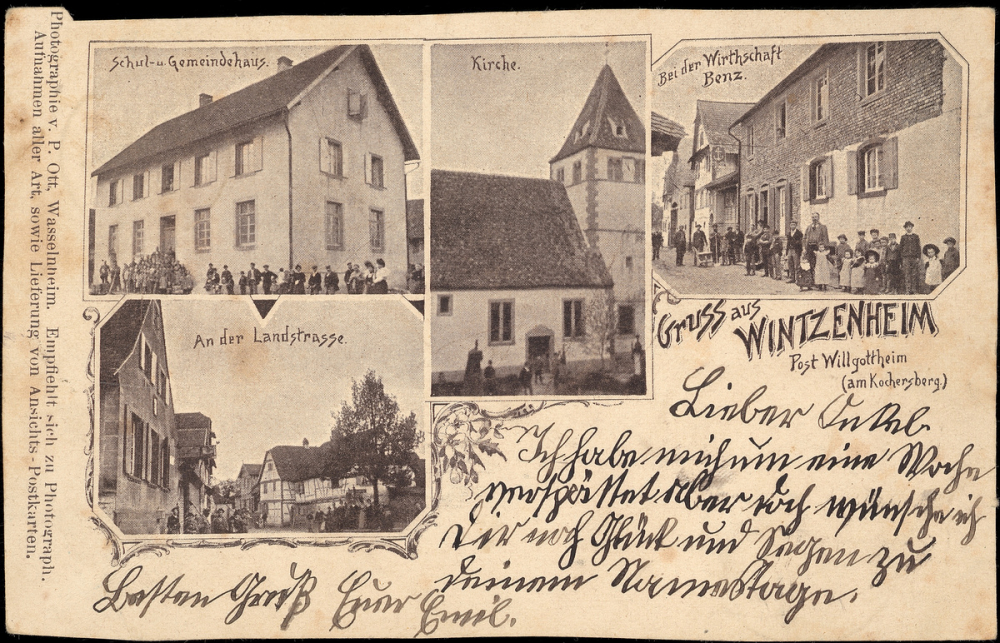 Photographie v. P. Ott, Wasselnheim. Empfiehlt sich zu Photograph.
Aufnahmen aller Art, sowie Lieferung von Ansichts-Postkarten.
Schul-u. Gemeindehaus.
Kirche.
Bei der Wirthschaft
Benz.
An der Landstrasse.
Gruss aus
WINTZENHEIM
Post Willgottheim
(am Kochersberg.)
Lieber Onkel.
Ich habe mich um eine Woche
verspättet aber doch wünsche ich
Der noch Glück und Segen zu
deinem Namestage.
Besten Gruß Euer Emil.